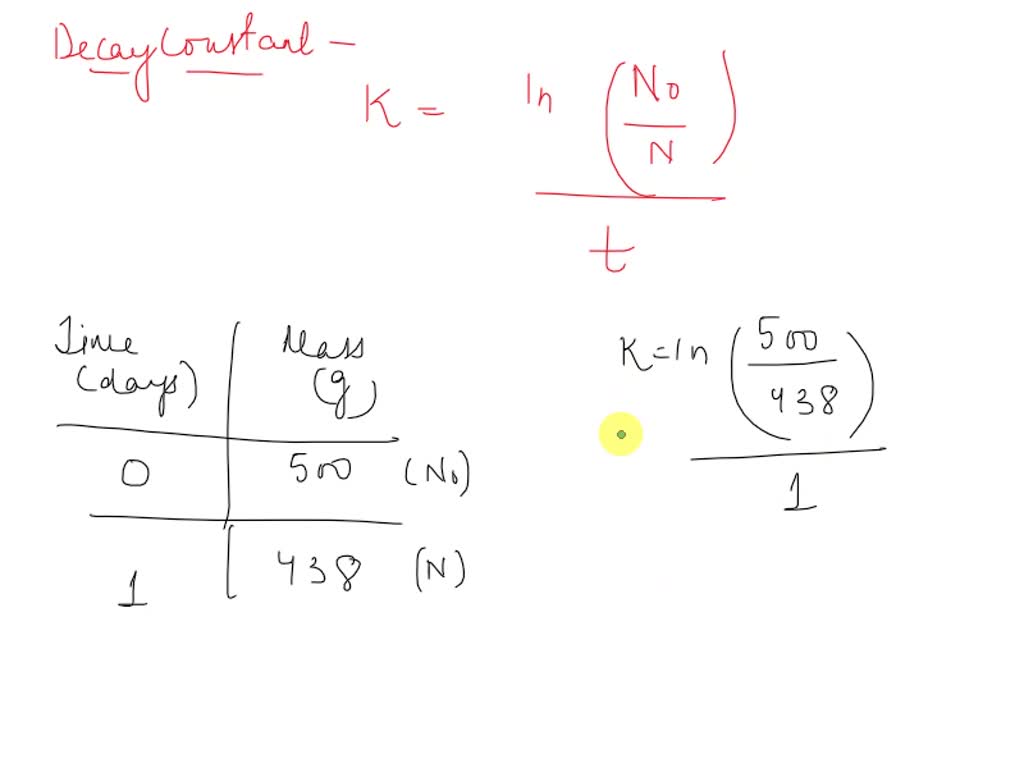 Decay Constant -
K = ln (No/N) / t
Time (days) | Mass (g)
0 | 500 (No)
1 | 438 (N)
K = ln (500/438) / 1